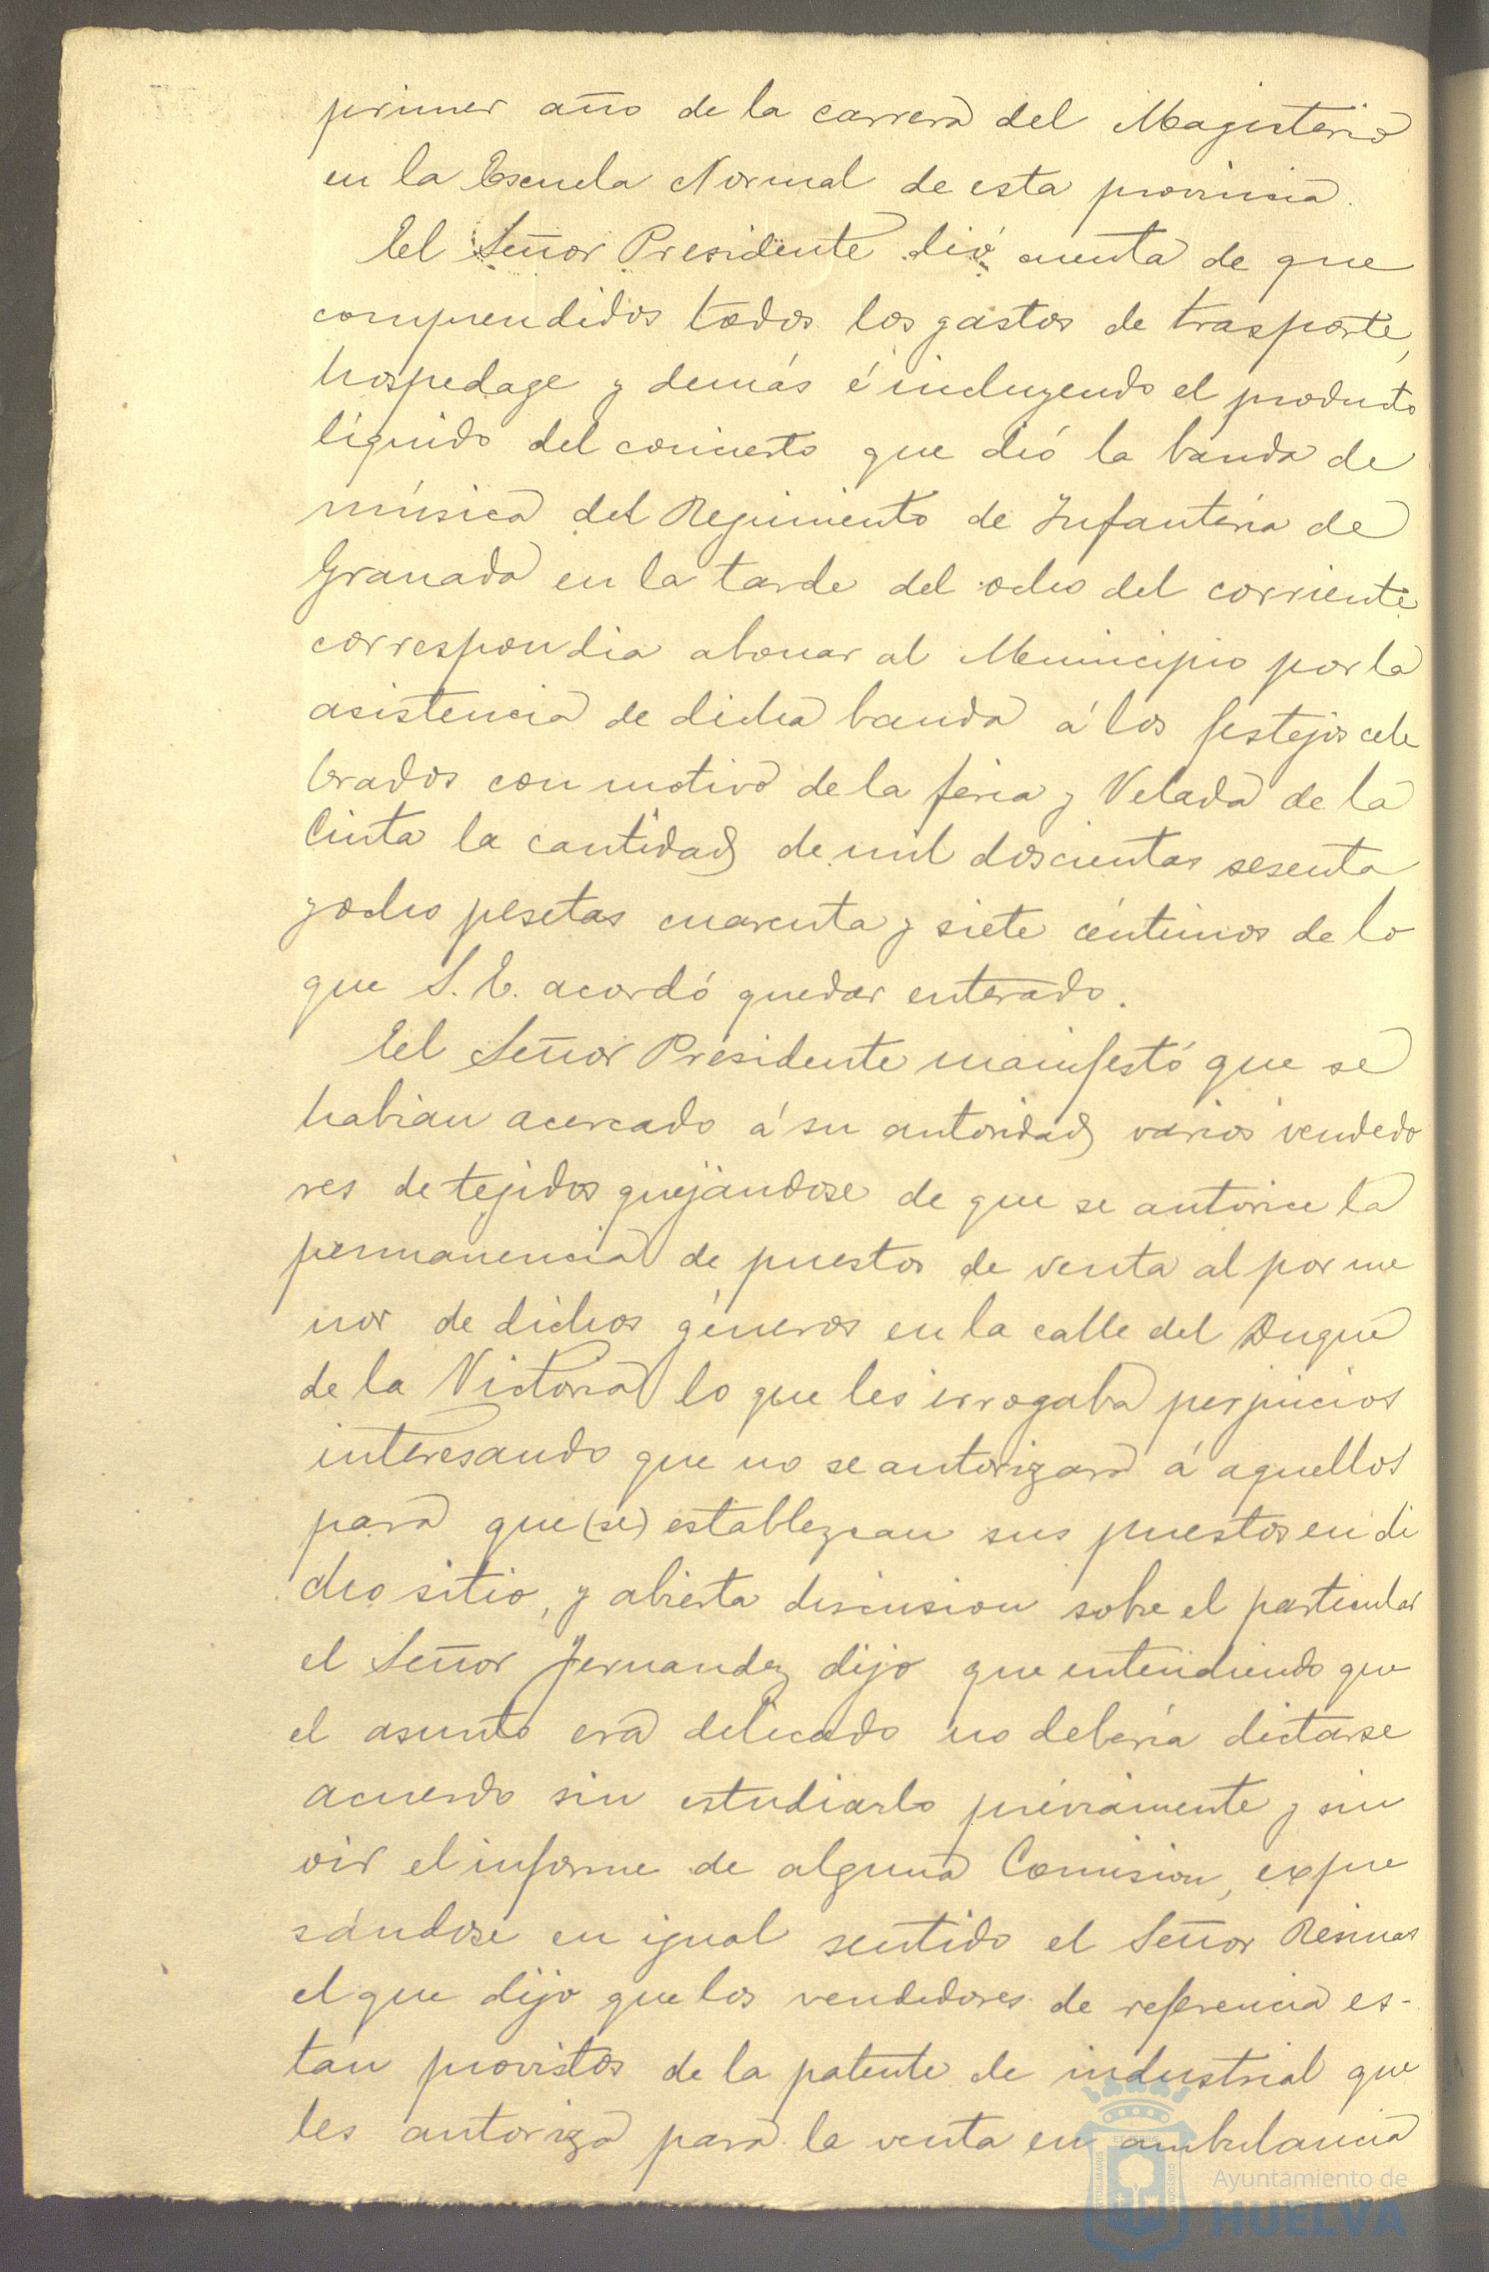 primer año de la carrera del Magisterio
en la Escuela Normal de esta provincia.
El Señor Presidente dió cuenta de que
comprendidos todos los gastos de trasporte,
hospedage y demás é incluyendo el producto
líquido del concierto que dió la banda de
música del Regimiento de Infantería de
Granada en la tarde del ocho del corriente
correspondia abonar al Municipio por la
asistencia de dicha banda á los festejos cele
brados con motivo de la feria y Velada de la
Cinta la cantidad de mil doscientas sesenta
y ocho pesetas cuarenta y siete céntimos de lo
que S. E. acordó quedar enterado.
El Señor Presidente manifestó que se
habian acercado á su autoridad varios vendedo
res de tejidos quejándose de que se autorice la
permanencia de puestos de venta al por me
nor de dichos géneros en la calle del Duque
de la Victoria lo que les irrogaba perjuicios
interesando que no se autorizara á aquellos
para que (se) establezcan sus puestos en di
cho sitio, y abierta discusion sobre el particular
el Señor Fernandez dijo que entendiendo que
el asunto era delicado no debería dictarse
acuerdo sin estudiarlo préviamente y sin
oir el informe de alguna Comision, expre
sándose en igual sentido el Señor Resinas
el que dijo que los vendedores de referencia es-
tan provistos de la patente de industrial que
les autoriza para la venta en ambulancia
Ayuntamiento de
HUELVA